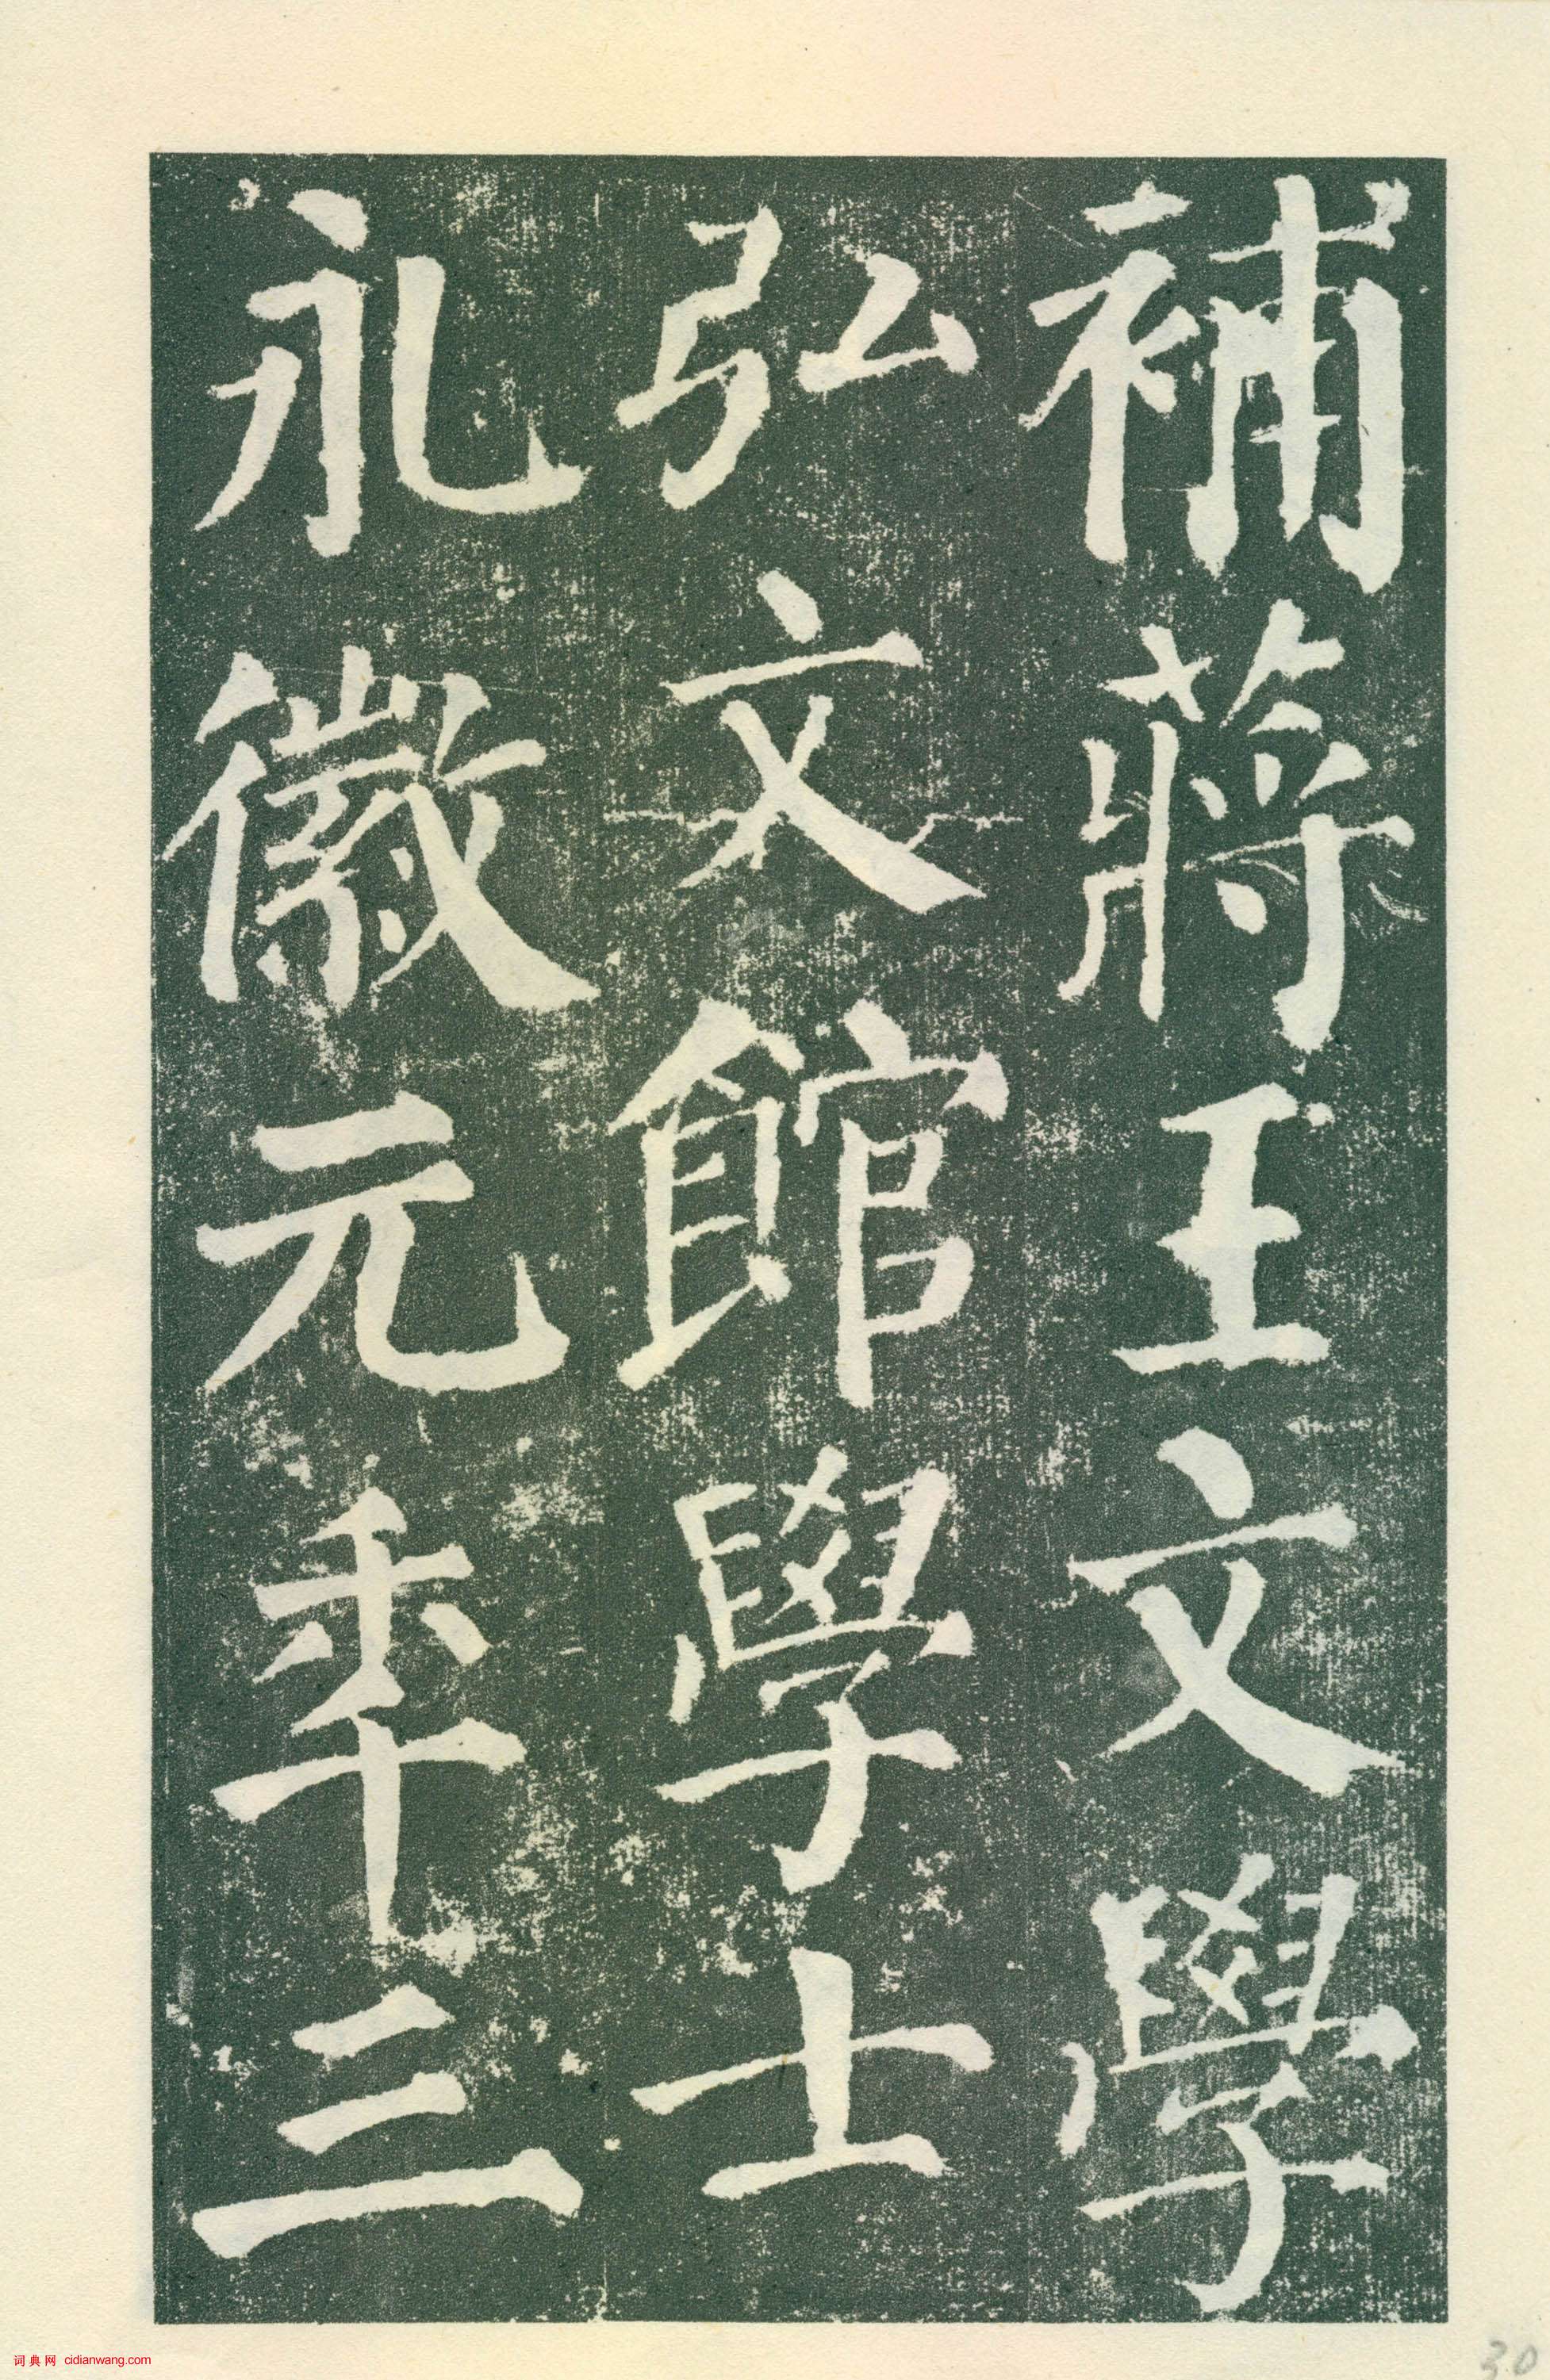 補蔣王文學
弘文館學士
永徽元年三
词典网 cidianwang.com
30